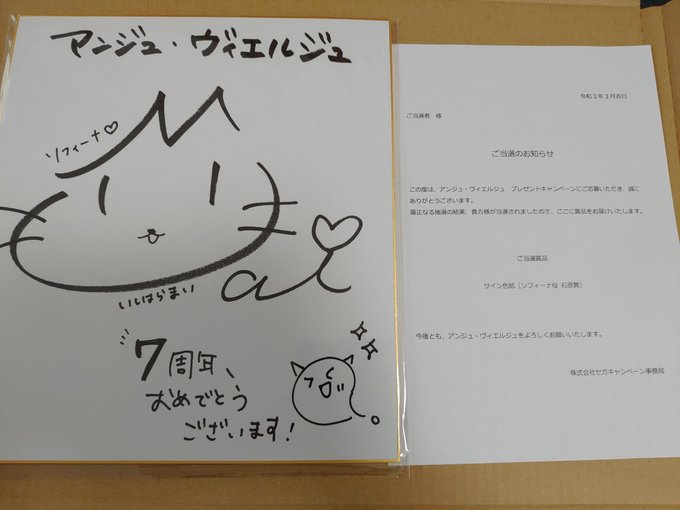 アンジュ・ヴィエルジュ
ソフィーナ♡
いしはらまい
7周年、
おめでとう
ございます!
令和3年3月吉日
ご当選者 様
ご当選のお知らせ
この度は、アンジュ・ヴィエルジュ プレゼントキャンペーンにご応募いただき、誠に
ありがとうございます。
厳正なる抽選の結果、貴方様が当選されましたので、ここに賞品をお届けいたします。
ご当選賞品
サイン色紙[ソフィーナ役 石原舞]
今後とも、アンジュ・ヴィエルジュをよろしくお願いいたします。
株式会社セガキャンペーン事務局